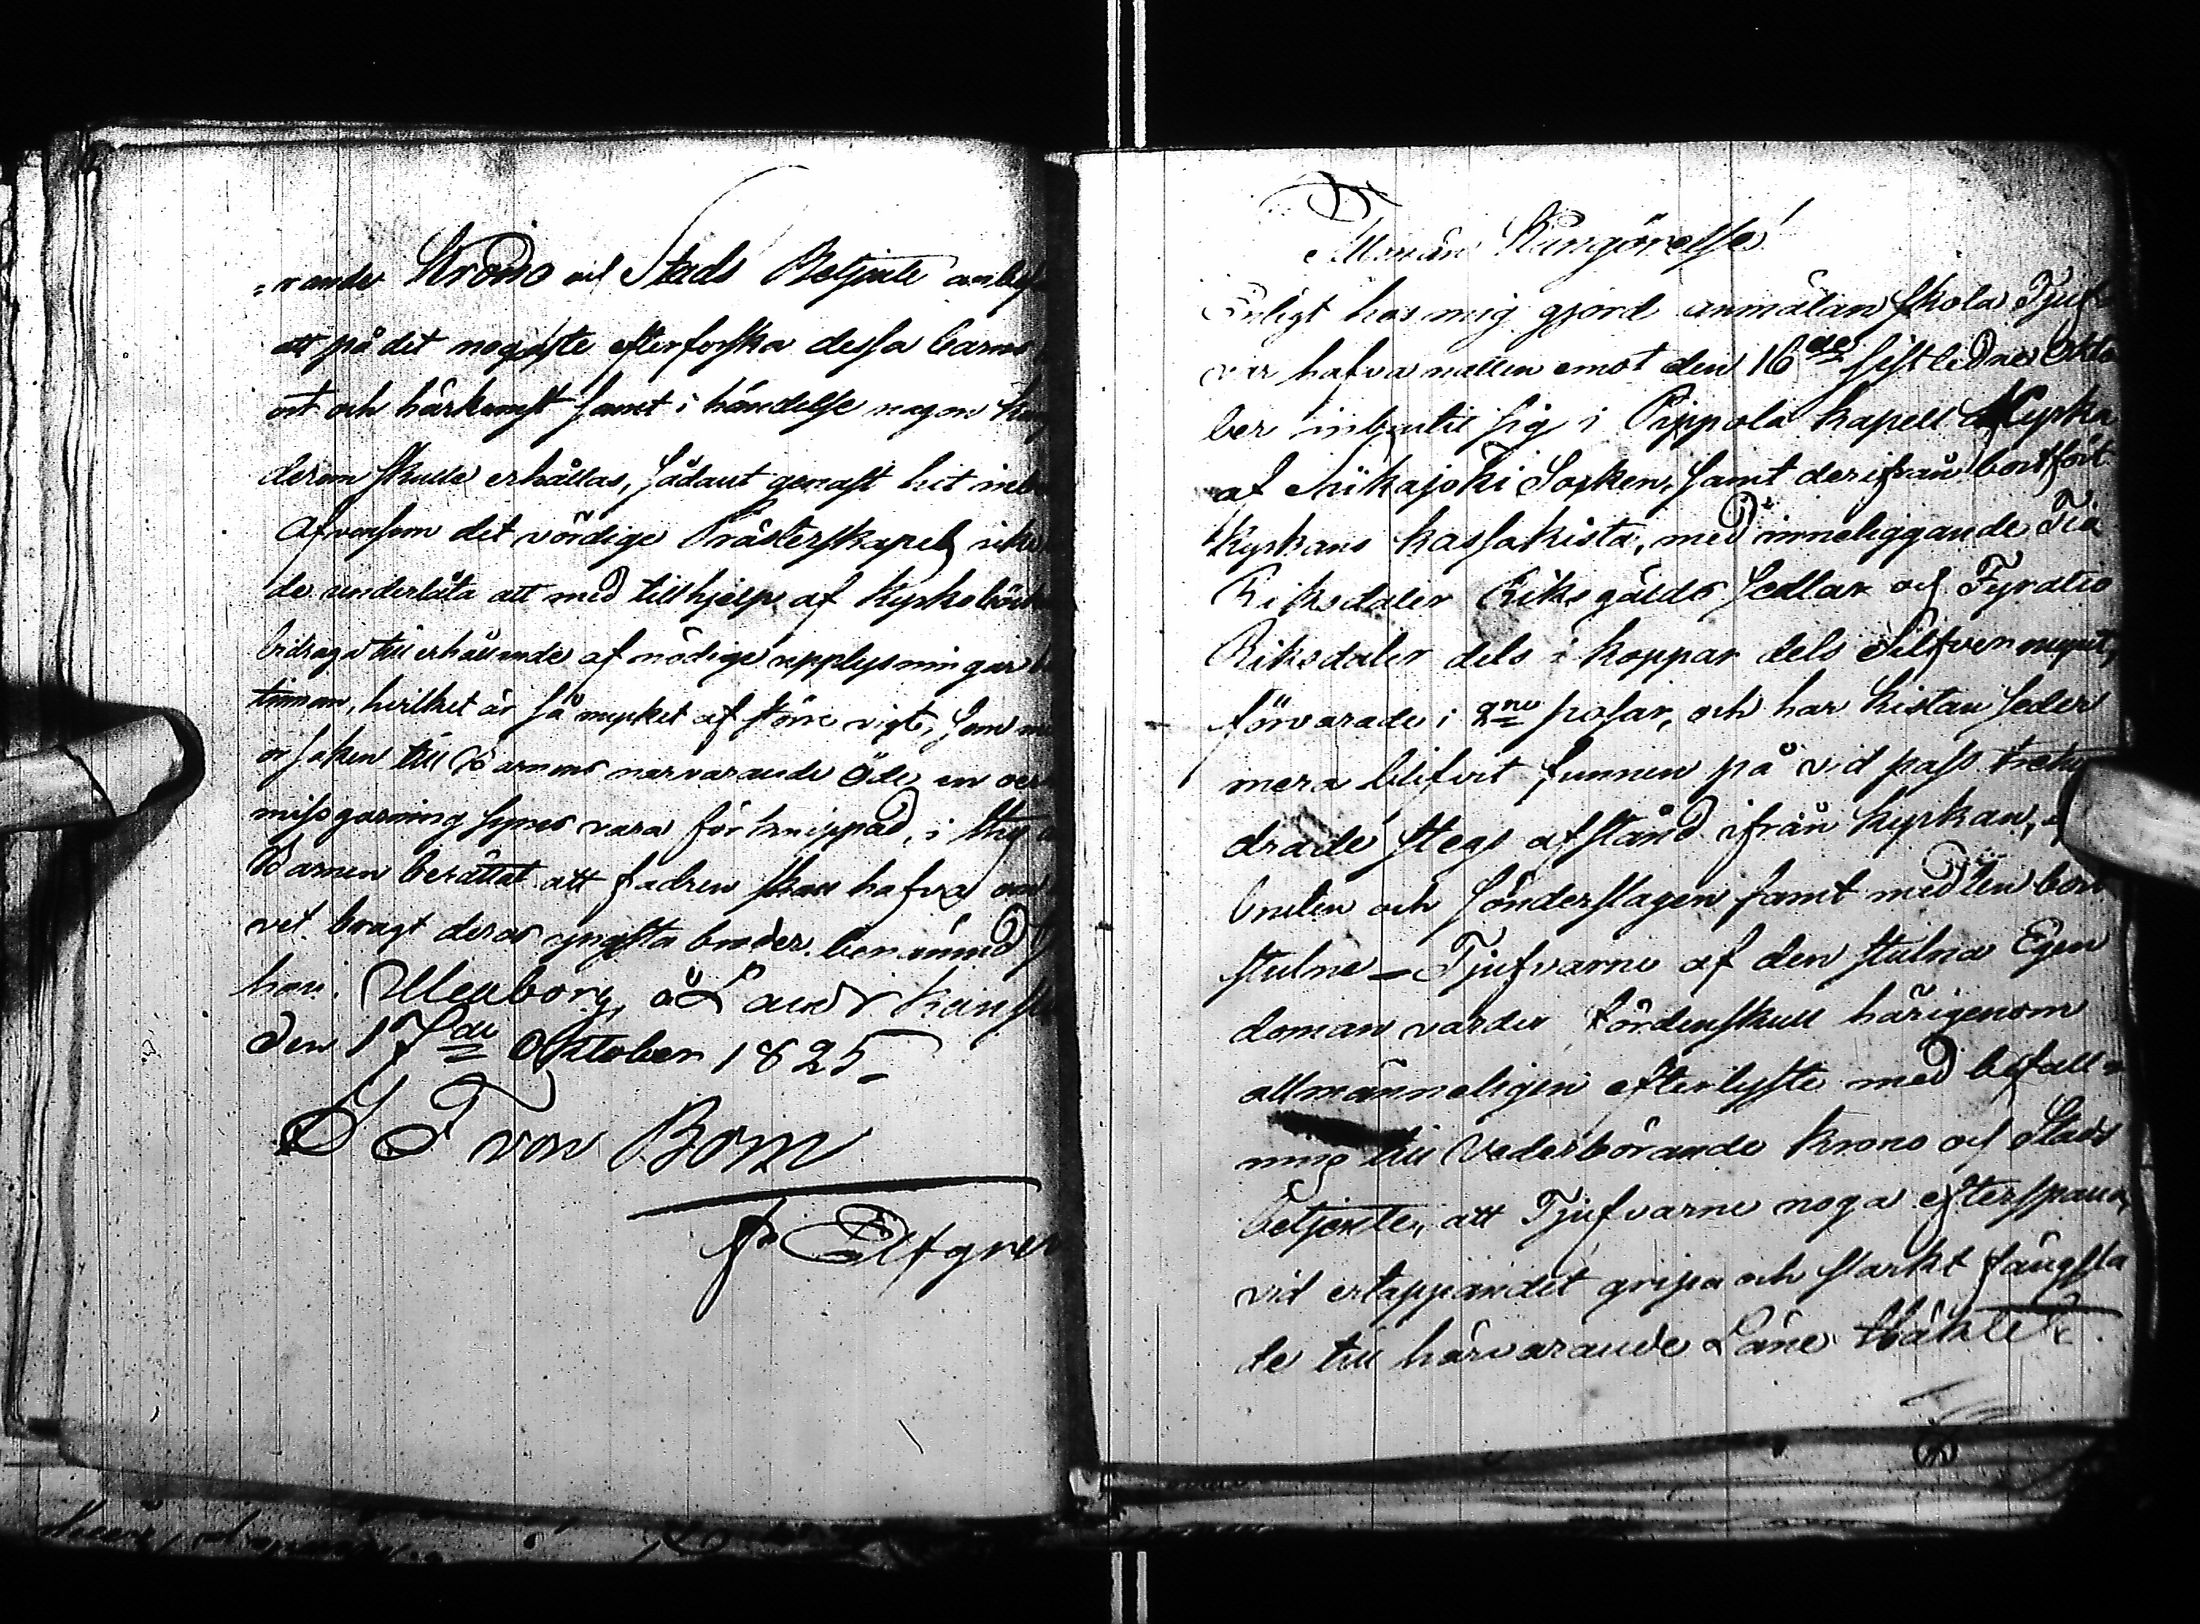 =rande Krono och Stads Betjente anbef
att på det nogaste efterforska dessa barns
ort och härkomst samt i händelse någon
derom skulle erhållas, sådant genast hit
Äfvensom det vördige Prästerskapet icke
de underlåta att med tillhjelp af Kyrkoböck
bidraga till erhållande af nödige upplysningar
timman, hvilket är så mycket af större vigt, som
orsaken till Barnens närvarande öde, en
missgärning synes vara förknippad, i
Barnen berättat att fadren skall hafva om
vet bragt deras yngsta broder benämnd
han. Uleaborg å Lands
den 17de October 1825
S F von Born
Elfgren
Allmän Kungörelse!
Enligt hos mig gjord anmälan skola Tjuf
var hafva natten emot den 16de sistledne Okto
ber inbrutit sig i Pippola kapell Kyrka
af Siikajoki Socken, samt derifrån bortfört
Kyrkans kassakista, med inneliggande Tio
Riksdaler Riksgälds Sedlar och Fyratio
Riksdaler dels i koppar dels Silfver mynt,
förvarade i 2ne påsar, och har kistan seder
mera blifvit funnen på vid pass
drade stegs afstånd ifrån kyrkan,
bruten och sönderslagen samt medlen bort
stulne – Tjufvarne af den stulna Egen
doman varder fördenskull härigenom
allmänneligen efterlyste med befall=
ning till Vederbörande krono och Stads
betjente, att Tjufvarne noga efterspana,
vid ertappandet gripa och starkt fängsla
de till härvarande Läns Häkte